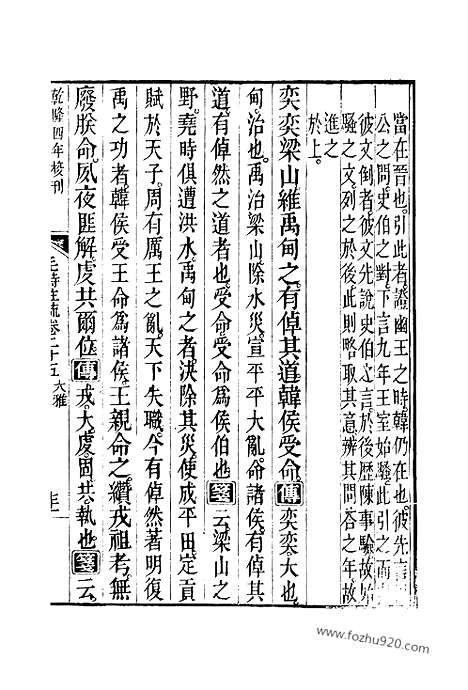 當在晉也。引此者。證幽王之時。韓仍在也。彼先言
公之問。史伯之對。下言九年王室始騷。此引之而
彼文倒者。彼文先說史伯之言。於後歷陳事驗。故始
騷之文。列之於後。此則略取其意。辨其問荅之年。故
進之
於上。
奕奕梁山。維禹甸之。有倬其道。韓侯受命。傳奕奕。大也。
甸。治也。禹治梁山。除水災。宣平平大亂。命諸侯。有倬其
道。有倬然之道者也。受命受命爲侯伯也。箋云。梁山之
野。堯時俱遭洪水。禹甸之者。決除其災。使成平田。定貢
賦於天子。周有厲王之亂。天下失職。今有倬然著明復
禹之功者。韓侯受王命爲諸侯。王親命之。纘戎祖考。無
廢朕命。夙夜匪解。虔共爾位。傳戎。大。虔。固。共。執也。箋云。
乾隆四年校刊
毛詩注疏卷二十五 大雅
www.fozhu920.com